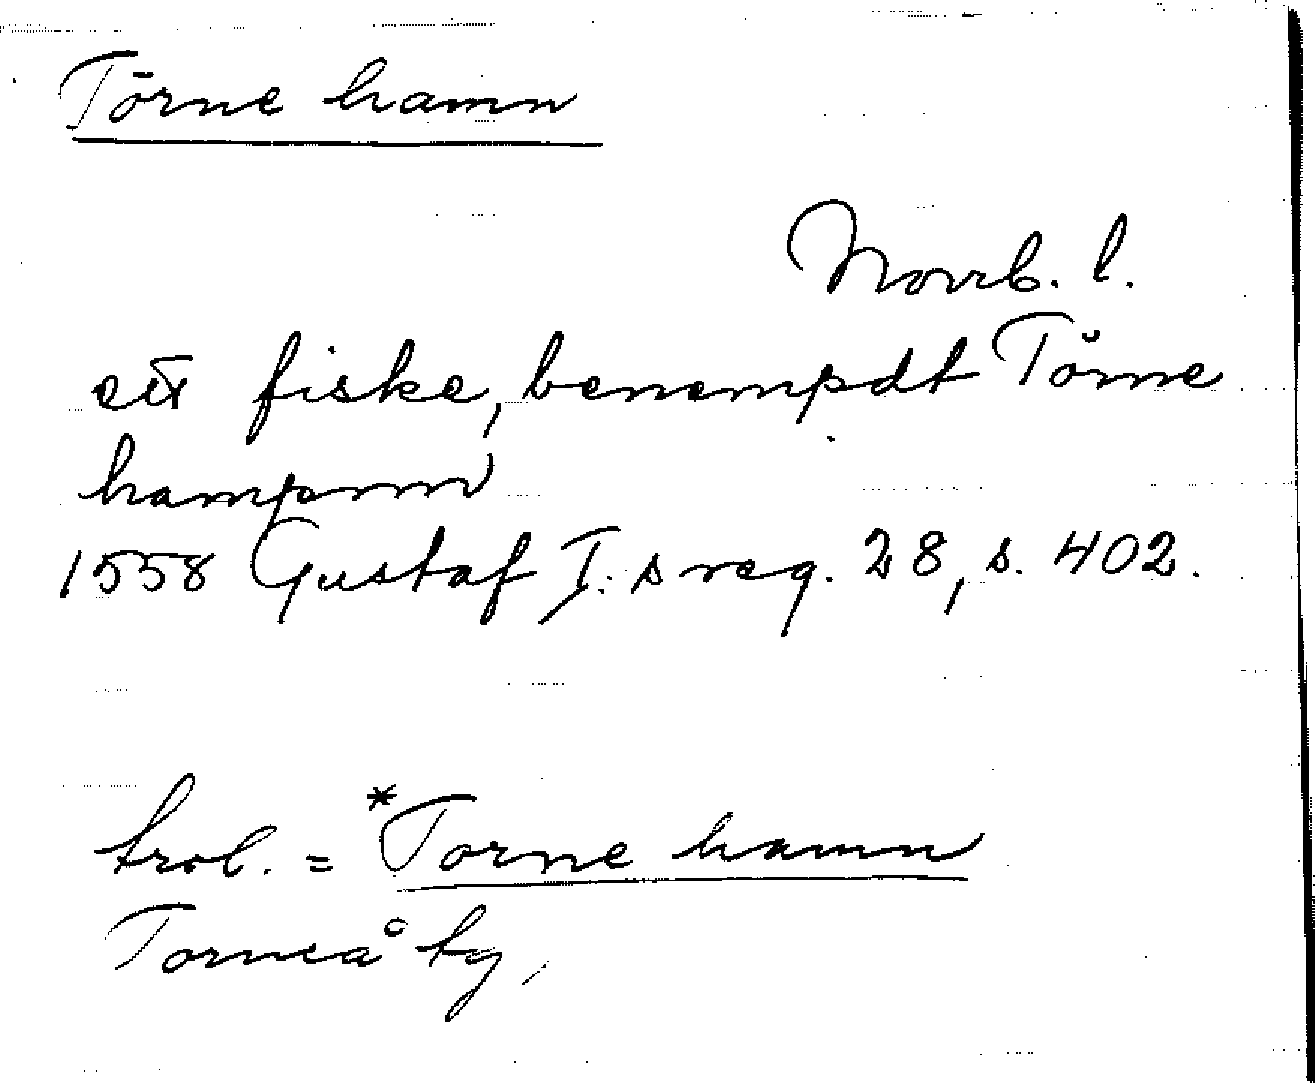 Törne hamn
Norrb. l.
ett fiske, benempdt Törne
hampnn
1558 Gustaf I:s reg. 28, s. 402.
trol. = *Torne hamn
Torneå tg,